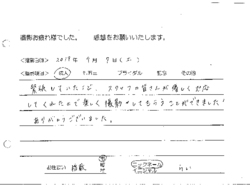 撮影お疲れ様でした。 感想をお願いいたします。
<撮影日時> 2019年 9月 7日(土)
成人 ブライダル その他
緊張していたけど、スタッフの皆さんが優しく対応
してくれたので楽しく撮影してもらうことができました!
ありがとうございました。
掲載
ニックネーム
イニシャル